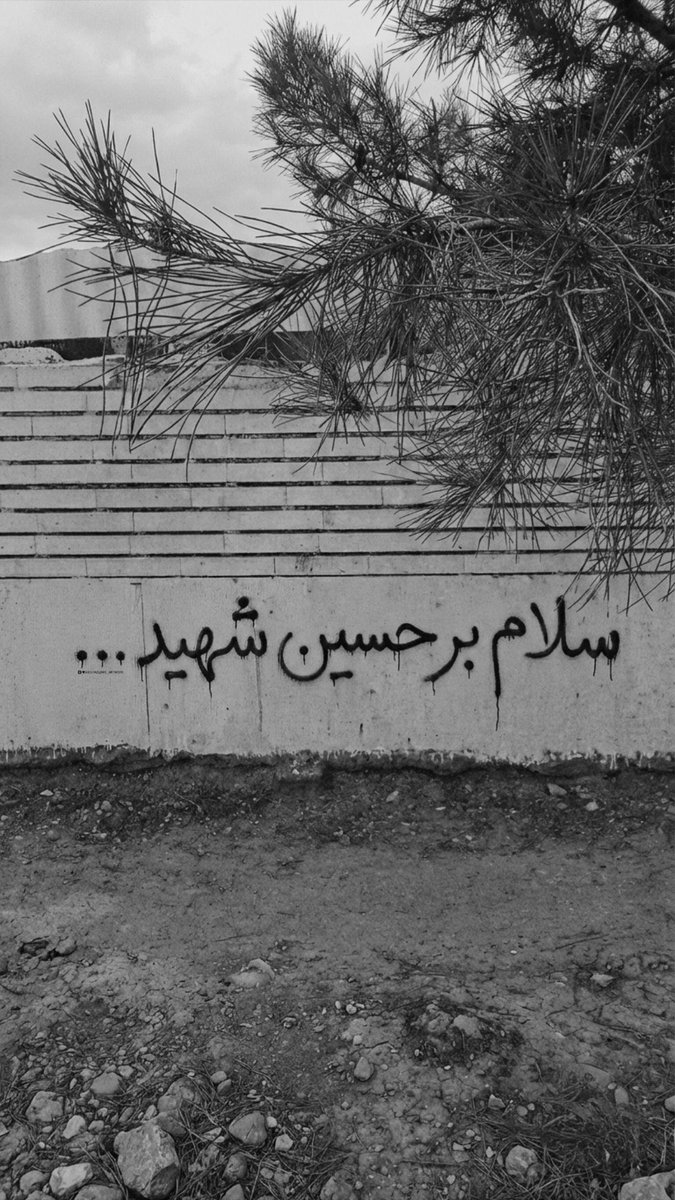 سلام بر حسین شهید...